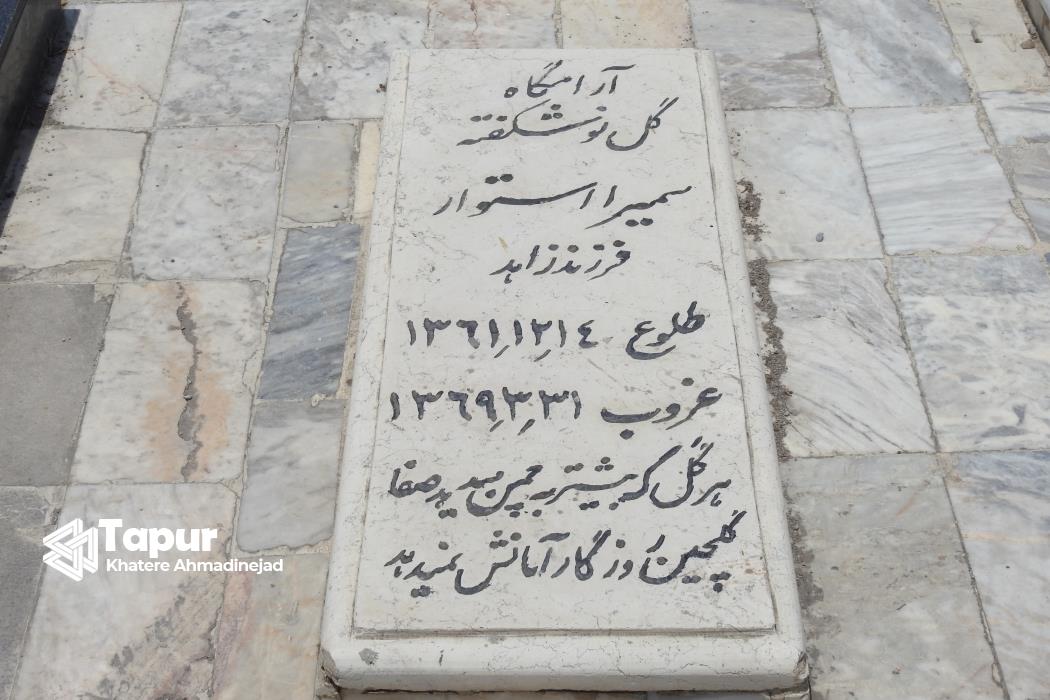 آرامگاه
گل نوشکفته
سمیرا استوار
فرزند زاهد
طلوع ۱۳۶۱٫۱۲٫۱۴
غروب ۱۳۶۹٫۳٫۳۱
هر گل که بیشتر به چمن میدهد صفا
گلچین روزگار امانش نمیدهد
Tapur
Khatere Ahmadinejad